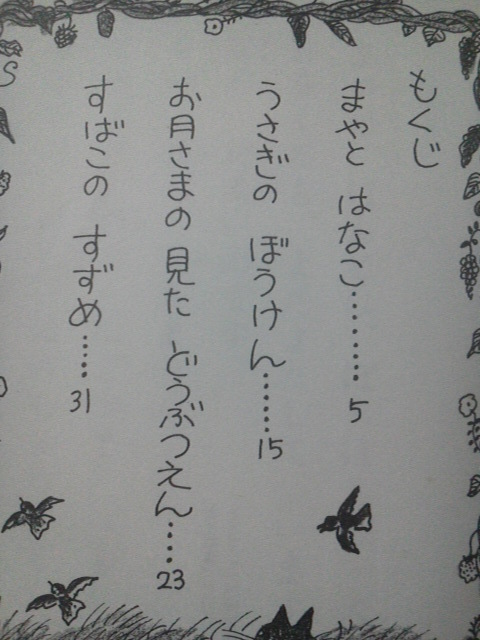 もくじ
まやと はなこ………5
うさぎの ぼうけん……15
お月さまの 見た どうぶつえん……23
すばこの すずめ……31